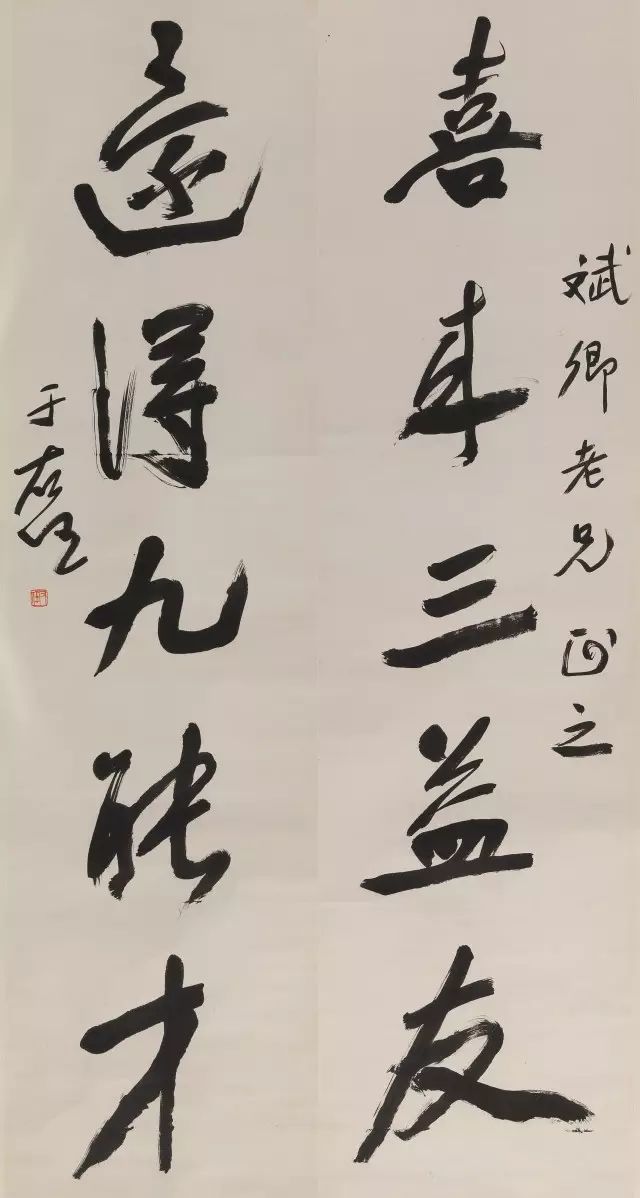 斌卿老兄正之
喜来三益友
還得九能才
于右任